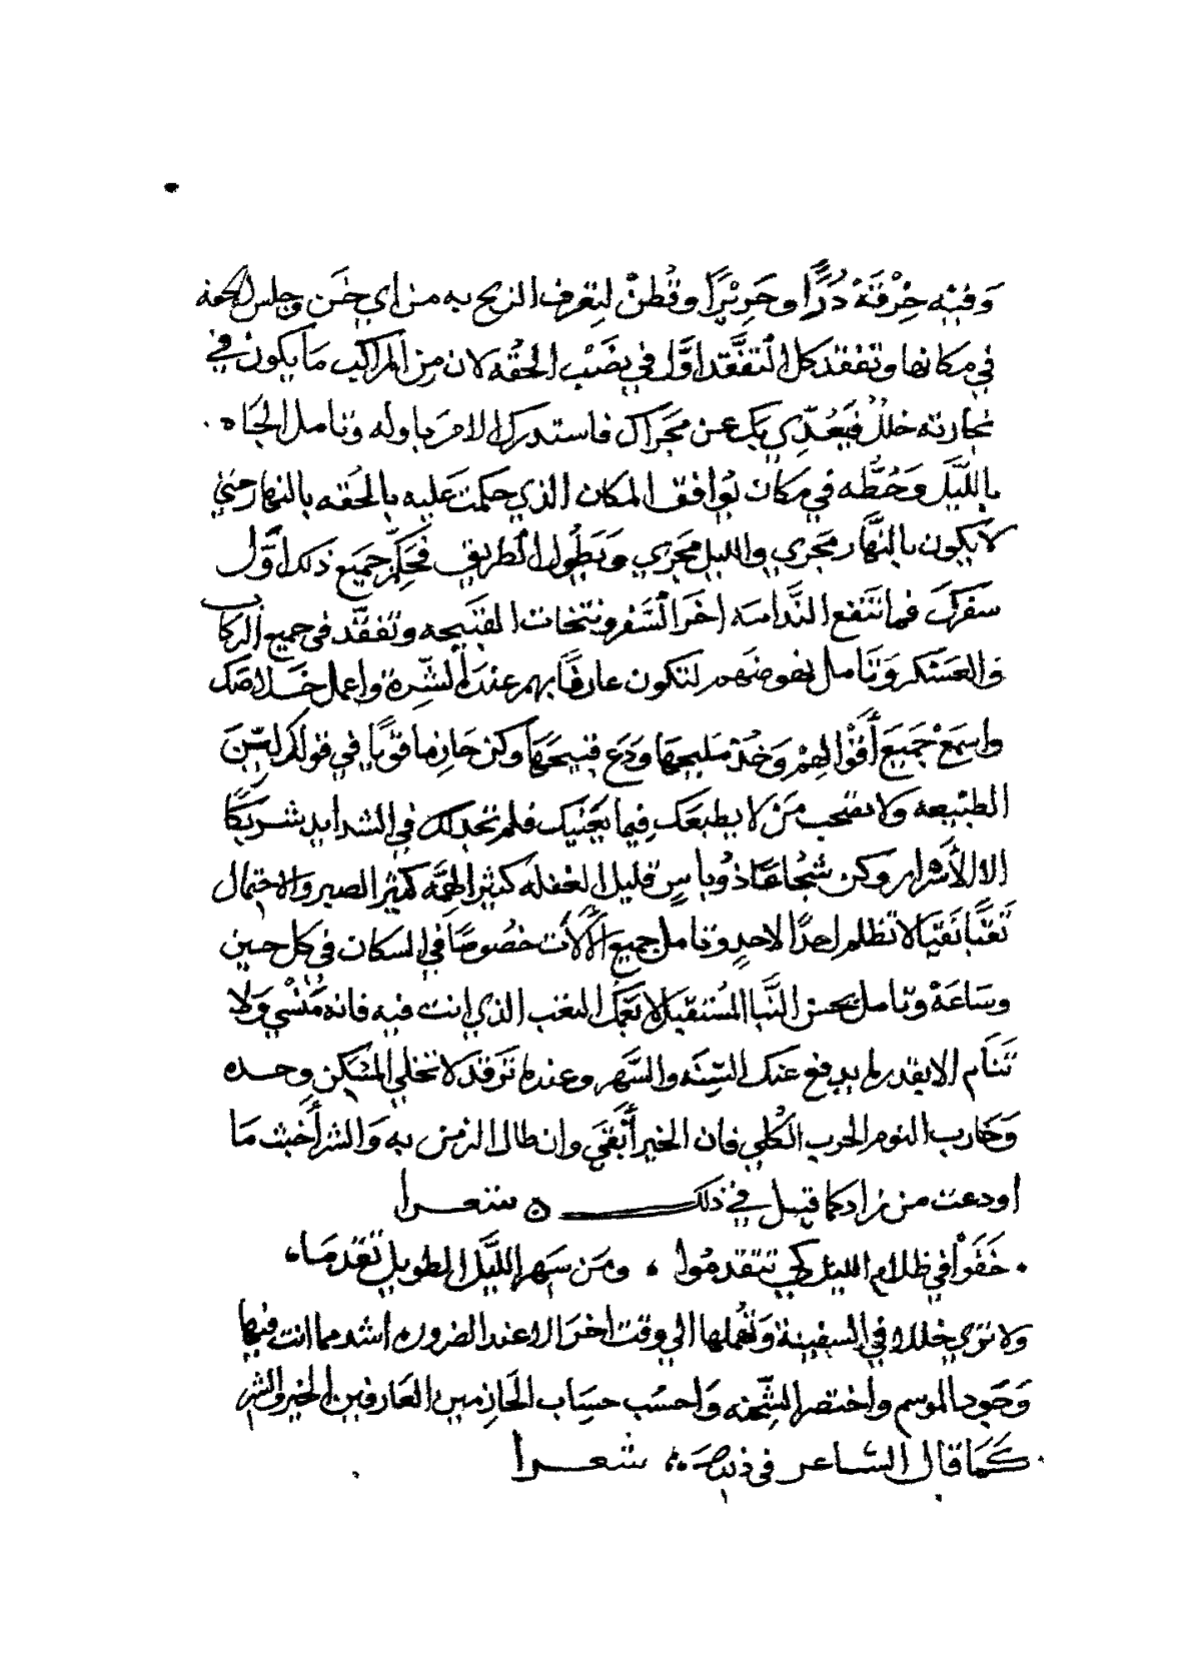 وَفيْه خِرْقَةُ دُرًّا وحَرِيْرًا وقُطنْ لِتعرف الريح به من اي خَن وجلس الحقه
في مكانها وتَفْقد كل التفقّد اوّل في نصَبْ الحُقّه لان مِن المراكب مَا يكون في
نجارته خللُ فيَعُدّي بك عن مجراك فاستدرك الامر باوله وتامل الجَاه
بالليَل وَحُطّه في مَكان يُوافق المكان الذي حكمت عَليه بالحُقه بالنهار حتي
لا يَكون بالنهَّار مَجري والليل مجري وَيَطُول الطريق فحَكِّم جميَع ذلك اوَّل
سفرك فما تَنفع النَّدامه اخرَ السَّفر ونتخات القبَيحه وتفقَّد في جميع الركاب
وَالعَسكر وَتَامل نهوضهم لتكون عارفاً بهم عند الشِّدة واعمل خلاصك
واسَمعْ جَميَع أقْوالهمْ وَخذْ مَليحها وَدَع قبيَحهَا وكن حَازما قوّيًا في قولك ليّن
الطبيعه ولا تصحب مَن لا يطيعَك فِيما يعَنيك فلم تجد لك في الشدايد شريكًا
الا الأشرار وكن شجُاعًا ذُو باسٍ قليل الغفله كثير الهمَّه كثير الصبر والاحتمال
تَقيّاً نَقيّا لا تظلم احدًا لاحدٍ وتامل جميع الألآت خصُوصًا في السكان في كل حين
وسَاعَهْ وتامل بحسن النَّبا المُستقبل لا تَعمَّك التعَب الذي انت فيه فانه مَنْسي وَلا
تنَام الا بقدر لم يدفع عنك السِّنَه والسَّهر وعند لم تَرقد لا تخلي المُسَكن وحده
وَحَارب النوم الحرب الكُلي فان الخير أبَقَي وان طال الزمن به وَالشر أخبث مَا
اودعت من زادكما قيل في ذلك ــــ ه شعــرا
خَفَوْا في ظلام الليل كي تتقدمُوا ، ومَن سَهر الليَّل الطويل تقدمَا
ولا تري خللا في السفينة وَتُهملها الي وقت اخرَ الا عند الضروره اشد مما انت فيها
وَجَود الموسم واختصر الشِّحنه وَاحسَب حسَاب الحَازمين العَارفين الخير والشر
كَمَا قال الشاعر في ذلك شعــرا